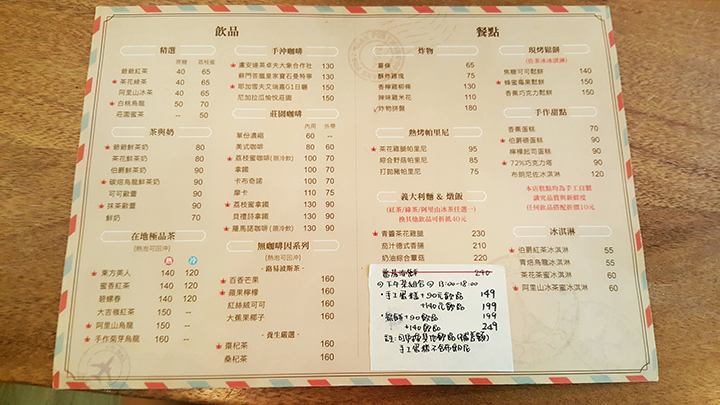 飲品
精選
蔗糖 荔枝蜜
爺爺紅茶 40 65
★茶花綠茶 40 65
阿里山冰茶 40 65
★白桃烏龍 50 70
莊園蜜茶 -- 50
茶與奶
★爺爺鮮奶茶 80
茶花鮮奶茶 80
伯爵鮮奶茶 90
★碳焙烏龍鮮奶茶 90
可可歐蕾 90
★抹茶歐蕾 90
鮮奶 70
在地極品茶
(熱泡可回沖)
熱 冷
★東方美人 140 120
蜜香紅茶 140 120
碧螺春 140 120
大吉嶺紅茶 150 --
★阿里山烏龍 150 --
★手作菊芽烏龍 160 --
手沖咖啡
★盧安達 130
130
★耶加雪夫艾瑞嘉G1日曬 150
尼加拉瓜愉悅莊園 130
莊園咖啡
內用 外帶
單份濃縮 60 --
美式咖啡 80 60
★荔枝蜜咖啡(限冷飲) 100 70
拿鐵 100 70
卡布奇諾 100 70
摩卡 110 75
★荔枝蜜拿鐵 130 90
★貝禮詩拿鐵 130 90
★羅馬諾咖啡(限冷飲) 130 90
無咖啡因系列
(熱泡可回沖)
-路易波斯茶-
★百香芒果 160
★蘋果檸檬 160
紅絲絨可可 160
大蕉果椰子 160
-養生嚴選-
★棗杞茶 160
桑杞茶 160
餐點
炸物
薯條 65
酥炸雞塊 75
香檸雞柳條 130
辣味雞米花 110
炸物拼盤 180
熱烤帕里尼
★茶花雞腿帕里尼 95
綜合野菇帕里尼 85
打拋豬帕里尼 85
義大利麵 & 燉飯
(紅茶/綠茶/阿里山冰茶任選一)
換其他飲品可折抵40元
★青醬茶花雞腿 230
茄汁德式香腸 210
奶油綜合蕈菇 220
240
下午茶組合 13:00-18:00
・手工蛋糕+90元飲品 149
+140元飲品 199
・鬆餅+90飲品 199
+140飲品 249
註:可換購其他飲品(補差額)
手工蛋糕不含布朗尼
現烤鬆餅
(佐茶冰冰淇淋)
焦糖可可鬆餅 140
★蜂蜜莓果鬆餅 150
香蕉巧克力鬆餅 150
手作甜點
香蕉蛋糕 70
★伯爵磅蛋糕 90
檸檬起司蛋糕 90
★72%巧克力塔 90
布朗尼佐冰淇淋 120
本店糕點均為手工自製
講究品質與新鮮度
任何飲品搭配折價10元
冰淇淋
★伯爵紅茶冰淇淋 60
青焙烏龍冰淇淋 60
茶花茶蜜冰淇淋 60
★阿里山冰茶蜜冰淇淋 60